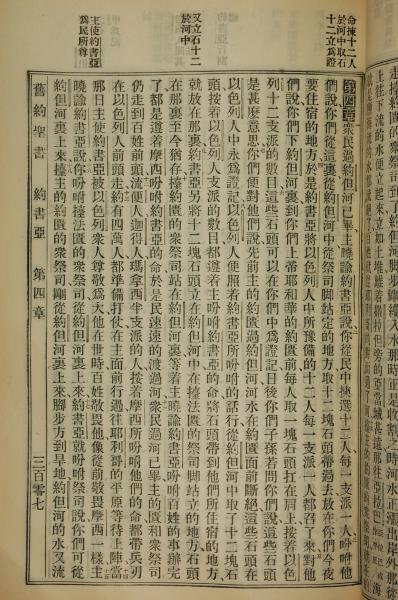 走擡約櫃的祭司到了約但河脚步纔入水那時正是收割之時河水正漲出岸外那從
上往下流的水便立起來立如土堆離着撒拉但旁的亞當城甚遠那往亞拉
命揀十二人
於河中取石
十二立爲證
又立石十二
於河中
主使約書亞
爲民所尊
第四章 衆民過約但河已畢主曉諭約書亞說你從民中揀選十二人每一支派一人吩咐他
們說你們從這裏從約但河中從祭司脚站定的地方取十二塊石頭帶過去放在你們今夜
要住宿的地方於是約書亞將以色列人中所豫備的十二人每一支派一人都召了來對他
們說你們下約但河裏到你們上帝耶和華的約櫃前每人取一塊石頭扛在肩上按着以色
列十二支派的數目這些石頭可以在你們中爲證記日後你們子孫若問你們說這些石頭
是甚麼意思你們便對他們說先前主的約櫃過約但河水在約櫃面前斷絕這些石頭在
以色列人中永爲證記以色列人便照着約書亞所吩咐的話行從約但河中取了十二塊石
頭按着以色列人支派的數目都遵着主吩咐約書亞的命將石頭帶到他們所住宿的地方
就放在那裏約書亞另將十二塊石頭立在約但河中在擡法匱的祭司脚站立的地方石頭
在那裏至今猶存擡約匱的衆祭司站在約但河裏等着主曉諭約書亞吩咐百姓的事辦完
了都是遵着摩西吩咐約書亞的命於是民速速的渡過河衆民過河已畢主的匱和衆祭司
仍走到百姓前頭流便人迦得人瑪拿西半支派的人按着摩西所吩咐他們的命都帶兵刃
在以色列人前頭走約有四萬人都準備打仗在主面前行過往耶利哥的平原等待上陣當
那日主使約書亞被以色列衆人尊敬爲大他在世時百姓敬畏他像從前敬畏摩西一樣主
曉諭約書亞說你吩咐擡法匱的衆祭司從約但河裏上來約書亞就吩咐祭司說你們可從
約但河裏上來擡主的約匱的衆祭司剛從約但河裏上來脚步方到旱地約但河的水又流
舊約聖書 約書亞 第四章 三百零七